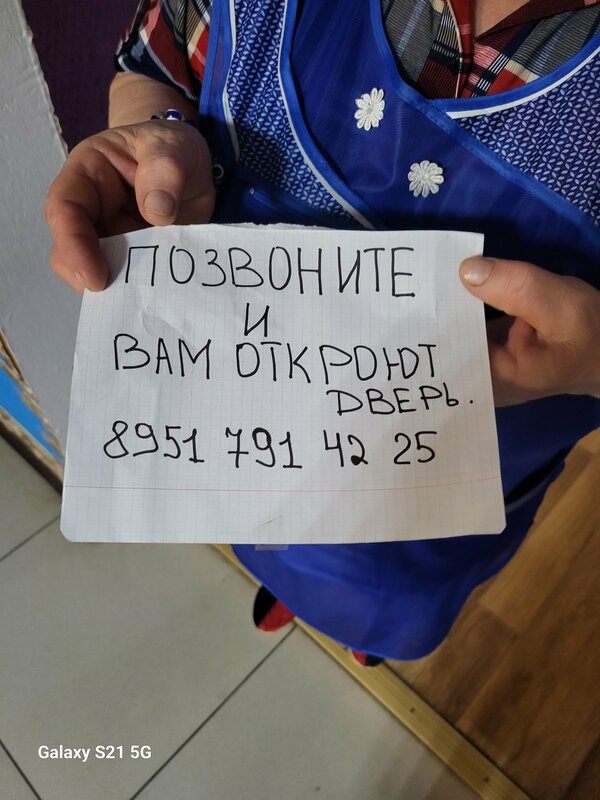 ПОЗВОНИТЕ
И
ВАМ ОТКРОЮТ
ДВЕРЬ.
8951 791 42 25
Galaxy S21 5G